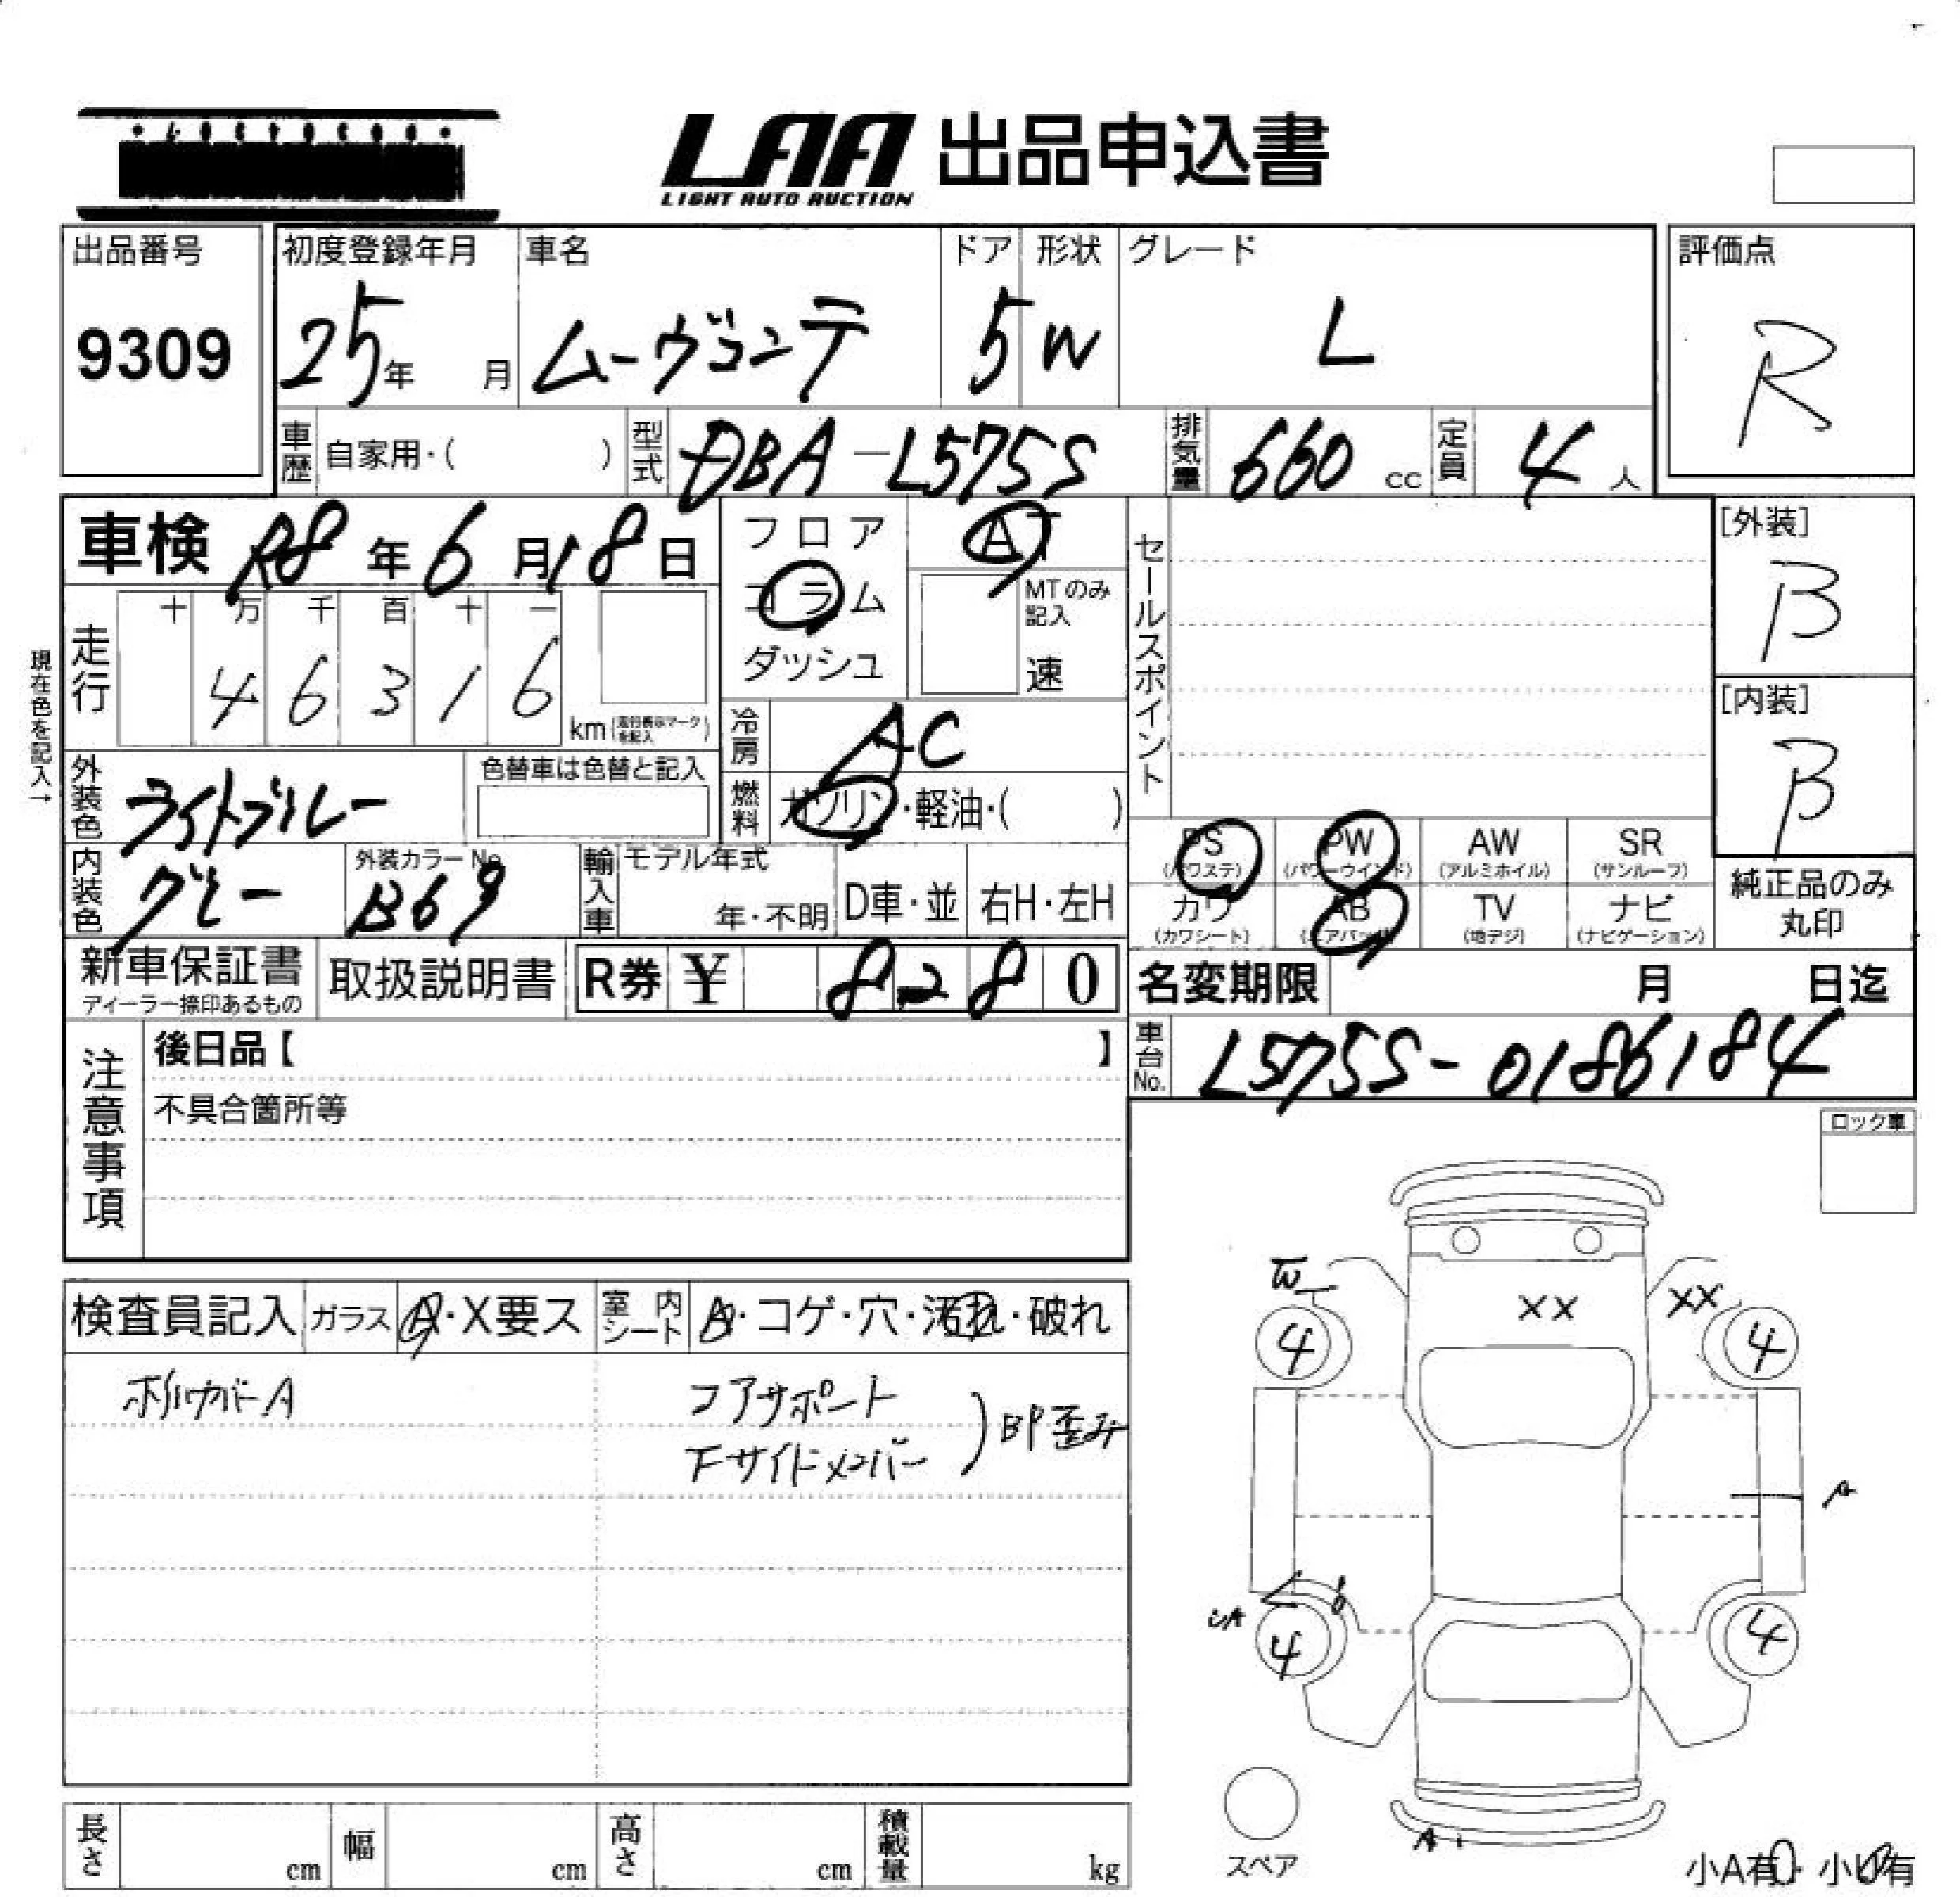 LAA 出品申込書
LIGHT AUTO AUCTION
出品番号
9309
初度登録年月
25年 月
車名
ムーヴコンテ
ドア
5
形状
W
グレード
L
評価点
R
車歴 自家用・( )
型式 DBA-L575S
排気量 660 cc
定員 4 人
車検 R8年6月18日
フロア
コラム
ダッシュ
AT
MTのみ記入
速
セールスポイント
[外装]
B
[内装]
B
現在色を記入→
走行
十 万 千 百 十 一
4 6 3 1 6
km(走行表示マークを記入)
冷房 AC
燃料 ガソリン・軽油・( )
外装色 ライトブルー
色替車は色替と記入
内装色 グレー
外装カラーNo.
B69
輸入車 モデル年式
年・不明
D車・並
右H・左H
PS
(パワステ)
PW
(パワーウインド)
AW
(アルミホイル)
SR
(サンルーフ)
カワ
(カワシート)
AB
(エアバッグ)
TV
(地デジ)
ナビ
(ナビゲーション)
純正品のみ
丸印
新車保証書
ディーラー捺印あるもの
取扱説明書
R券 ¥ 8280
名変期限 月 日迄
車台No. L575S-0186184
注意事項
後日品【 】
不具合箇所等
ロック車
検査員記入
ガラス A・X要ス
室内シート A・コゲ・穴・汚れ・破れ
ホイルカバーA
コアサポート
下サイドメンバー
)BP歪み
W
XX
XX
4
4
A
4
4
A
スペア
小A有・小U有
長さ cm
幅 cm
高さ cm
積載量 kg